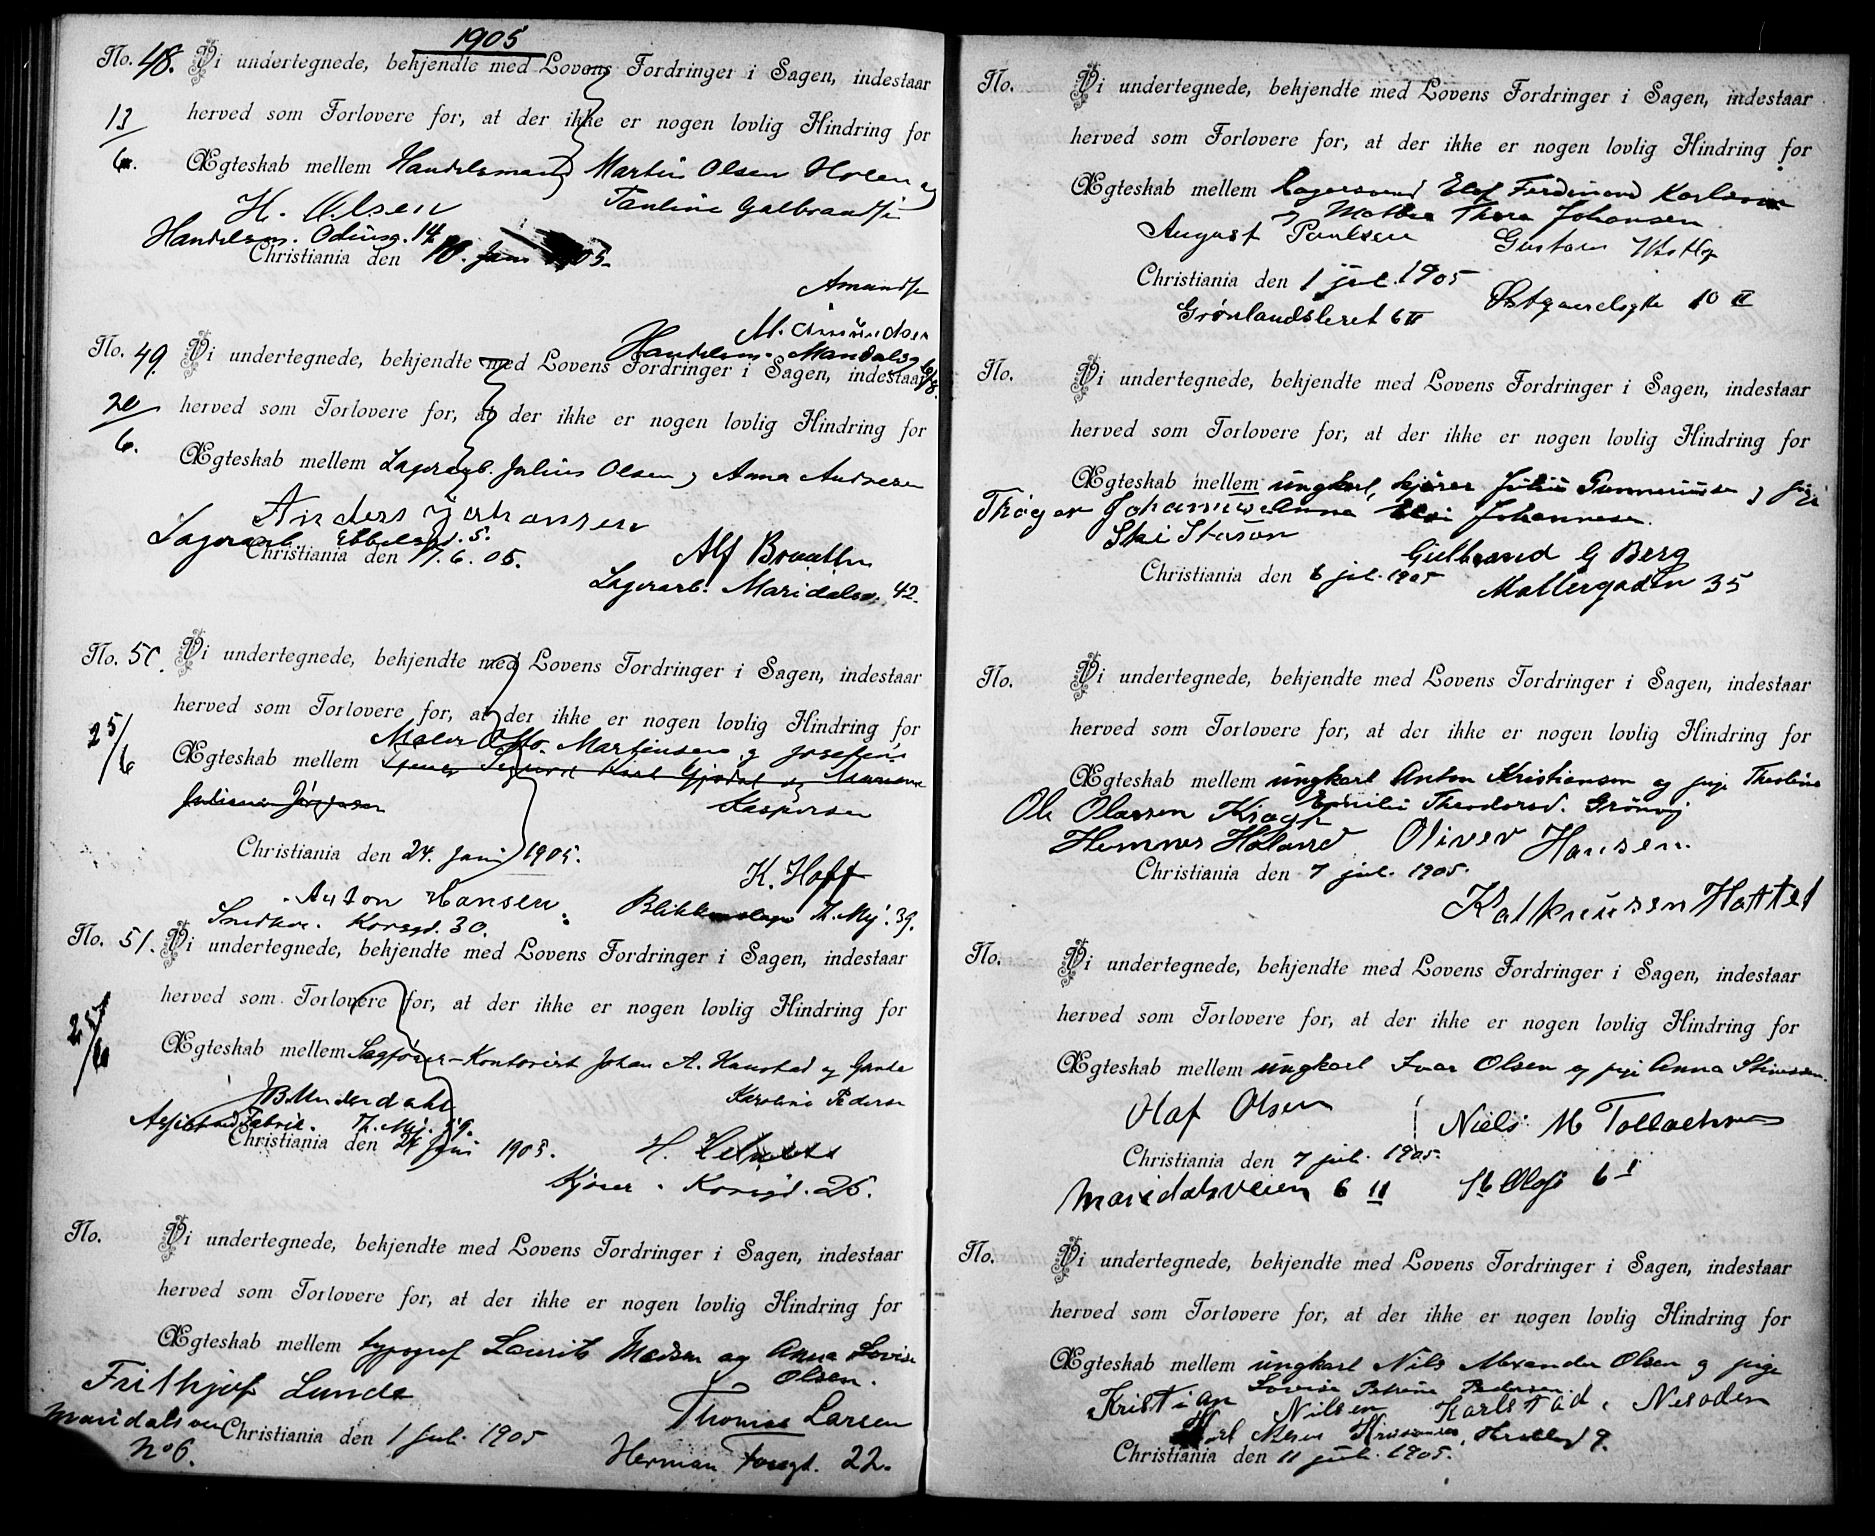 1905
No. 48. Vi undertegnede, bekjendte med Lovens Fordringer i Sagen, indestaar
13/6. herved som Forlovere for, at der ikke er nogen lovlig Hindring for
Ægteskab mellem Handelsmand Martin Olsen Holen og
H. Olsen Pauline Gulbrandse
Handelsm. Odinsg. 14
Christiania den 10. Juni 1905.
Amundse
M. Amundsen
Handelsm. Mandalsg
No. 49. Vi undertegnede, bekjendte med Lovens Fordringer i Sagen, indestaar
20/6. herved som Forlovere for, at der ikke er nogen lovlig Hindring for
Ægteskab mellem Lageragb. Julius Olsen og Anna Andersen
Anders Johansen
Lagerarb. Ebbelsgd. 5.
Christiania den 17.6.05. Alf Braathen
Lagerarb. Maridalsv. 42.
No. 50. Vi undertegnede, bekjendte med Lovens Fordringer i Sagen, indestaar
25/6 herved som Forlovere for, at der ikke er nogen lovlig Hindring for
Maler Otto Martinsen og Josefine
Ægteskab mellem
Kaspersen
Christiania den 24. Juni 1905.
K. Hoff
Anton Hansen Blikkenslager Th. Mj. 39.
Snedker. Korsgd. 30.
No. 51. Vi undertegnede, bekjendte med Lovens Fordringer i Sagen, indestaar
25/6 herved som Forlovere for, at der ikke er nogen lovlig Hindring for
Ægteskab mellem Sagfører-Kontorist Johan A. Haustad og Grete
Karoline Pederse
Th. Mj. 59.
Christiania den 24 Juni 1905.
Kjører. Korsgd. 25.
No. Vi undertegnede, bekjendte med Lovens Fordringer i Sagen, indestaar
herved som Forlovere for, at der ikke er nogen lovlig Hindring for
Ægteskab mellem typograf Laurits Madsen og Anna Lovise
Olsen.
Frithjof Lunde
Thomas Larsen
Maridalsveien
Christiania den 1 juli 1905
No 6. Herman Foregt. 22.
No. Vi undertegnede, bekjendte med Lovens Fordringer i Sagen, indestaar
herved som Forlovere for, at der ikke er nogen lovlig Hindring for
Ægteskab mellem Lagersvend Elof Ferdinand Karlsson
og Mathea Thora Johansen
August Paulsen Gustav Vestby
Christiania den 1 jul. 1905
Grønlandsleret 6 II Østgaardsgte 10 II
No. Vi undertegnede, bekjendte med Lovens Fordringer i Sagen, indestaar
herved som Forlovere for, at der ikke er nogen lovlig Hindring for
Ægteskab mellem ungkarl, kjører Julius Gunneriussen og pige
Thøger Johannesen Anna Elvi Johannesen.
Ski Station
Gulbrand G Berg
Christiania den 6 jul. 1905
Møllergaden 35
No. Vi undertegnede, bekjendte med Lovens Fordringer i Sagen, indestaar
herved som Forlovere for, at der ikke er nogen lovlig Hindring for
Ægteskab mellem ungkarl Anton Kristiansen og pige Theoline
Emilie Theodorsd. Grønvig
Ole Olassen Kragt
Hemnes Høland Oliver Hansen.
Christiania den 7 jul. 1905.
No. Vi undertegnede, bekjendte med Lovens Fordringer i Sagen, indestaar
herved som Forlovere for, at der ikke er nogen lovlig Hindring for
Ægteskab mellem ungkarl Ivar Olsen og pige Anna Stinesen.
Olaf Olsen Niels M Tollaehsen
Christiania den 7 jul. 1905.
Maridalsveien 6 II St Olafs 6 I
No. Vi undertegnede, bekjendte med Lovens Fordringer i Sagen, indestaar
herved som Forlovere for, at der ikke er nogen lovlig Hindring for
Ægteskab mellem ungkarl Nils Alexander Olsen og pige
Lovise Petrine Pedersen
Kristian Nilsen Karlstad, Nesodden
Christiania den 11 juli. 1905.